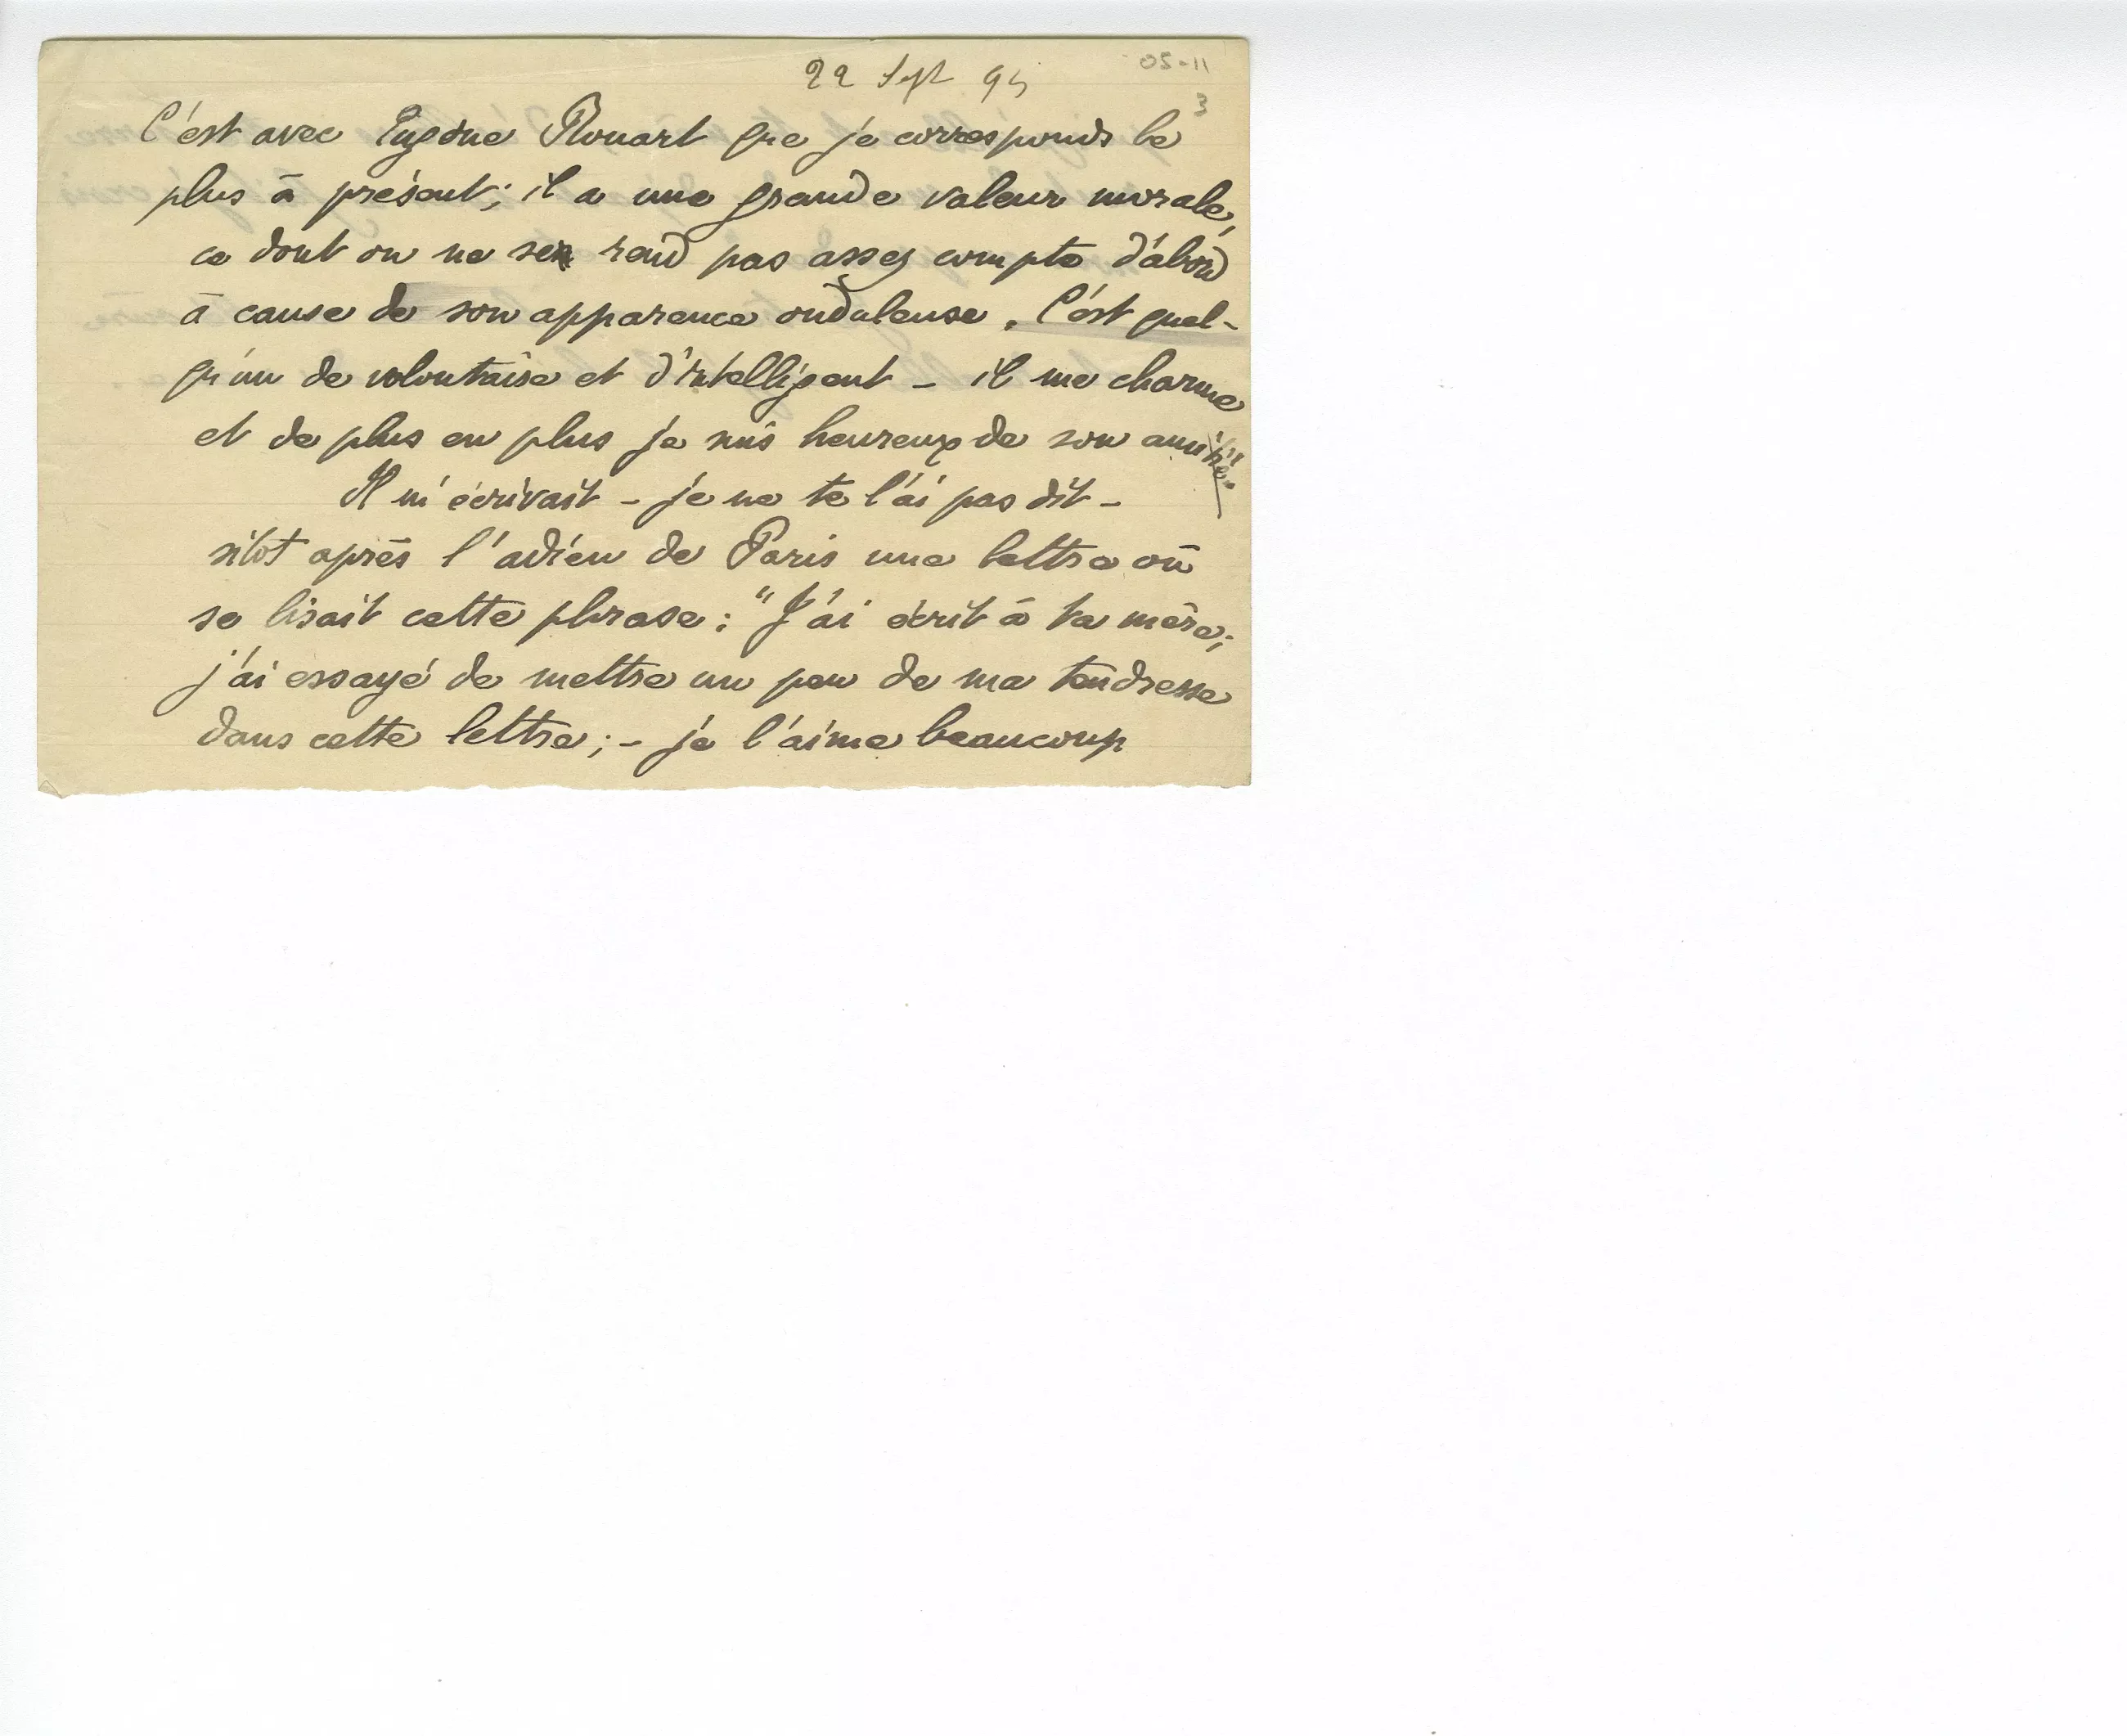 05-11
22 Sept 94
3
C'est avec Eugène Rouart que je corresponds le
plus à présent ; il a une grande valeur morale,
ce dont on ne se rend pas assez compte d'abord
à cause de son apparence onduleuse. C'est quel-
qu'un de volontaire et d'intelligent – il me charme
et de plus en plus je suis heureux de son amitié."
Il m'écrivait – je ne te l'ai pas dit –
sitôt après l'adieu de Paris une lettre où
se lisait cette phrase : "J'ai écrit à ta mère ;
j'ai essayé de mettre un peu de ma tendresse
dans cette lettre ; – je l'aime beaucoup